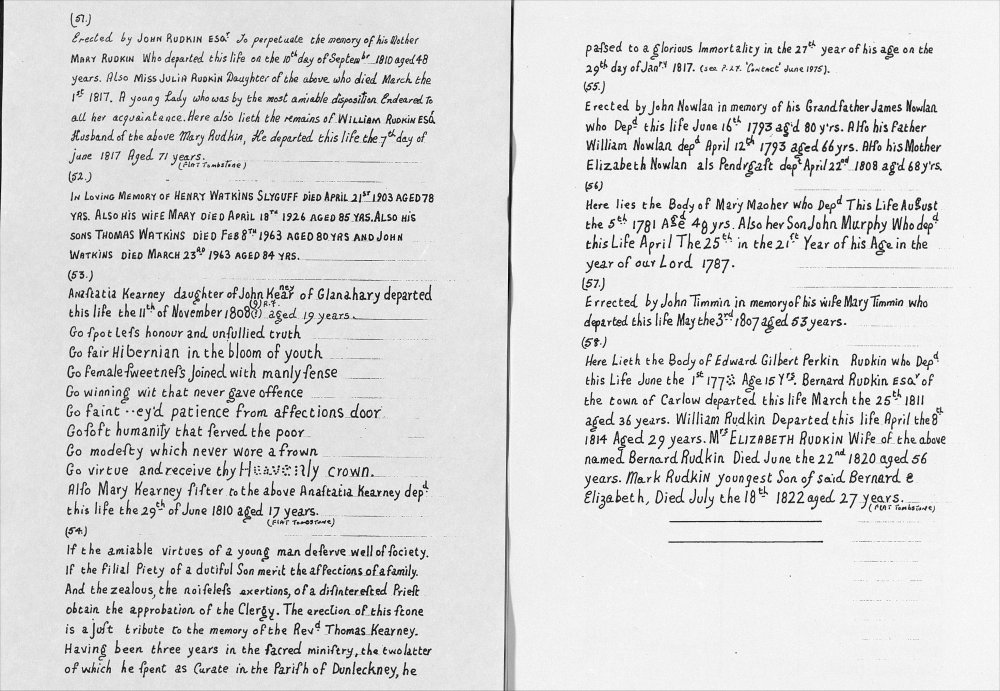 (51.)
Erected by JOHN RUDKIN ESQr To perpetuate the memory of his Mother
MARY RUDKIN Who departed this life on the 10th day of Septembr 1810 aged 48
years. Also Miss JULIA RUDKIN Daughter of the above who died March the
1st 1817. A young Lady who was by the most amiable disposition Endeared To
all her acquaintance. Here also lieth the remains of WILLIAM RUDKIN ESQ.
Husband of the above Mary Rudkin, He departed this life the 7th day of
june 1817 Aged 71 years.
(FLAT TOMBSTONE)
(52.)
IN LOVING MEMORY OF HENRY WATKINS SLYGUFF DIED APRIL 21ST 1903 AGED 78
YRS. ALSO HIS WIFE MARY DIED APRIL 18TH 1926 AGED 85 YRS. ALSO HIS
SONS THOMAS WATKINS DIED FEB 8TH 1963 AGED 80 YRS AND JOHN
WATKINS DIED MARCH 23RD 1963 AGED 84 YRS.
(53.)
Anaſtatia Kearney daughter of John Kearney of Glanahary departed
this life the 11th of November 1808(?) aged 19 years.
Go ſpotleſs honour and unſullied truth
Go fair Hibernian in the bloom of youth
Go female ſweetneſs Joined with manly ſense
Go winning wit that never gave offence
Go faint ..ey'd patience from affections door
Go ſoft humanity that ſerved the poor
Go modeſty which never wore a frown
Go virtue and receive thy Heavenly crown.
Alſo Mary Kearney ſiſter to the above Anaſtatia Kearney depd
this life the 29th of June 1810 aged 17 years.
(FLAT TOMBSTONE)
(54.)
If the amiable virtues of a young man deſerve well of ſociety.
If the Filial Piety of a dutiful Son merit the affections of a family.
And the zealous, the noiſeleſs axertions, of a diſintereſted Prieſt
obtain the approbation of the Clergy. The erection of this ſtone
is a Juſt tribute to the memory of the Revd Thomas Kearney.
Having been three years in the ſacred miniſtry, the two latter
of which he ſpent as Curate in the Pariſh of Dunleckney, he
paſsed to a glorious Immortality in the 27th year of his age on the
29th day of Janry 1817. (see P.27. 'Contact' June 1975).
(55.)
Erected by John Nowlan in memory of his Grandfather James Nowlan
who Depd this life June 16th 1793 ag'd 80 y'rs. Alſo his Father
William Nowlan depd April 12th 1793 aged 66 yrs. Alſo his Mother
Elizabeth Nowlan als Pendrgaſt dept April 22nd 1808 ag'd 68 y'rs.
(56)
Here lies the Body of Mary Maoher who Depd This Life AuGust
the 5th 1781 AGEd 48 yrs. Also her Son John Murphy Who depd
this Life April The 25th in the 21ſt Year of his Age in the
year of our Lord 1787.
(57.)
Errected by John Timmin in memory of his wife Mary Timmin who
departed this life May the 3rd 1807 aged 53 years.
(58.)
Here Lieth the Body of Edward Gilbert Perkin Rudkin who Depd
this Life June the 1st 177 Age 15 Yrs. Bernard RUDKIN ESQr of
the town of Carlow departed this life March the 25th 1811
aged 36 years. William Rudkin Departed this life April the 8th
1814 Aged 29 years. Mrs ELIZABETH RUDKIN Wife of the above
named Bernard Rudkin Died June the 22nd 1820 aged 56
years. Mark Rudkin youngest Son of said Bernard &
Elizabeth, Died July the 18th 1822 aged 27 years.
(FLAT TOMBSTONE)